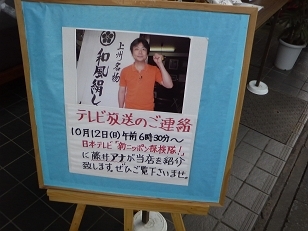 上州名物
和風絹し
テレビ放送のご連絡
10月12日(日)午前6時30分～
日本テレビ"新ニッポン探検隊!"
に藤井アナが当店を紹介
致します。ぜひご覧下さいませ。